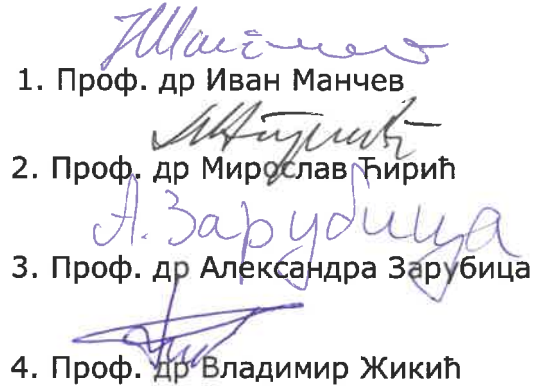 1. Проф. др Иван Манчев
2. Проф. др Мирослав Ћирић
А. Зарубица
3. Проф. др Александра Зарубица
4. Проф. др Владимир Жикић